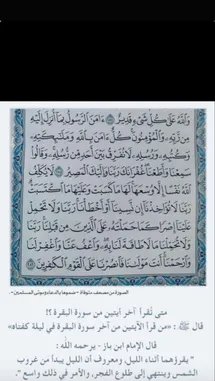 وَاللَّهُ عَلَىٰ كُلِّ شَيْءٍ قَدِيرٌ ءَامَنَ الرَّسُولُ بِمَا أُنزِلَ إِلَيْهِ
مِن رَّبِّهِ وَالْمُؤْمِنُونَ كُلٌّ ءَامَنَ بِاللَّهِ وَمَلَائِكَتِهِ
وَكُتُبِهِ وَرُسُلِهِ لَا نُفَرِّقُ بَيْنَ أَحَدٍ مِّن رُّسُلِهِ وَقَالُوا
سَمِعْنَا وَأَطَعْنَا غُفْرَانَكَ رَبَّنَا وَإِلَيْكَ الْمَصِيرُ لَا يُكَلِّفُ
اللَّهُ نَفْسًا إِلَّا وُسْعَهَا لَهَا مَا كَسَبَتْ وَعَلَيْهَا مَا اكْتَسَبَتْ
رَبَّنَا لَا تُؤَاخِذْنَا إِن نَّسِينَا أَوْ أَخْطَأْنَا رَبَّنَا وَلَا تَحْمِلْ
عَلَيْنَا إِصْرًا كَمَا حَمَلْتَهُ عَلَى الَّذِينَ مِن قَبْلِنَا رَبَّنَا
وَلَا تُحَمِّلْنَا مَا لَا طَاقَةَ لَنَا بِهِ وَاعْفُ عَنَّا وَاغْفِرْ لَنَا
وَارْحَمْنَا أَنتَ مَوْلَانَا فَانصُرْنَا عَلَى الْقَوْمِ الْكَافِرِينَ
الصورة من مصحف متوفاة - ضموها بالدعاء وموتى المسلمين -.
متى تُقرأ آخر آيتين من سورة البقرة ؟!
قال ﷺ : «من قرأ الآيتين من آخر سورة البقرة في ليلة كفتاه»
قال الإمام ابن باز - يرحمه الله :
" يقرؤهما أثناء الليل، ومعروف أن الليل يبدأ من غروب
الشمس وينتهي إلى طلوع الفجر، والأمر في ذلك واسع ".